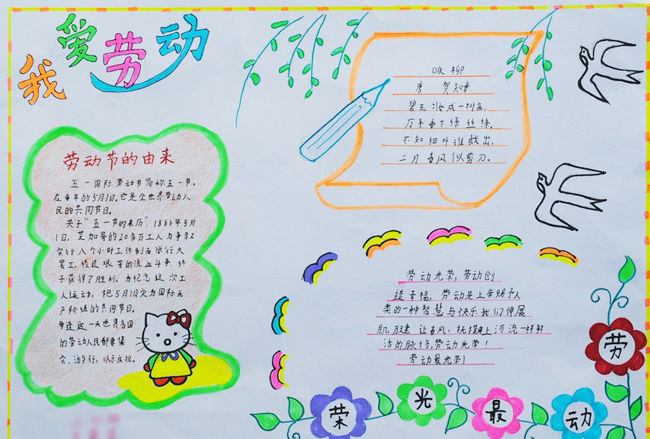 我爱劳动
劳动节的由来
五一国际劳动节简称五一节,
在每年的5月1日,它是全世界劳动人
民的共同节日。
关于"五一节的来历",1886年5月
1日,芝加哥的20多万工人为争取
实行八个小时工作制而举行大
罢工,经过艰苦的流血斗争,终
于获得了胜利。为纪念这次工
人运动,把5月1日定为国际无
产阶级的共同节日。
在这一天世界各国
的劳动人民都要集
会,游行,以示庆祝。
咏柳
唐 贺知章
碧玉妆成一树高,
万条垂下绿丝绦。
不知细叶谁裁出,
二月春风似剪刀。
劳动光荣,劳动创
造幸福,劳动是上帝赐予人
类的一种智慧与快乐我们伸展
肌肤春风,抚摸上河流一样鲜
活的脉络,劳动光荣!
劳动最光荣!
劳
荣光最动